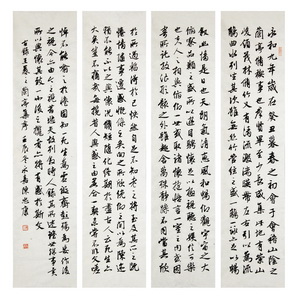 永和九年歲在癸丑暮春之初會于會稽山陰之
蘭亭脩禊事也羣賢畢至少長咸集此地有崇山
峻領茂林脩竹又有清流激湍暎帶左右引以為流
觴曲水列坐其次雖無絲竹管弦之盛一觴一詠亦足以暢
敘幽情是日也天朗氣清惠風和暢仰觀宇宙之大
俯察品類之盛所以遊目騁懷足以極視聽之娛信可樂
也夫人之相與俯仰一世或取諸懷抱悟言一室之內或因
寄所託放浪形骸之外雖趣舍萬殊靜躁不同當其欣
於所遇暫得於己快然自足不知老之將至及其所之既
惓情隨事遷感慨係之矣向之所欣俛仰之間以為陳迹
猶不能不以之興懷況脩短隨化終期於盡古人云死生亦
大矣豈不痛哉每攬昔人興感之由若合一契未嘗不臨文嗟
悼不能喻之於懷固知一死生為虛誕齊彭殤為妄作後
之視今亦由今之視昔悲夫故列敘時人錄其所述雖世殊事異
所以興懷其致一也後之攬者亦將有感於斯文
右錄王羲之蘭亭集序